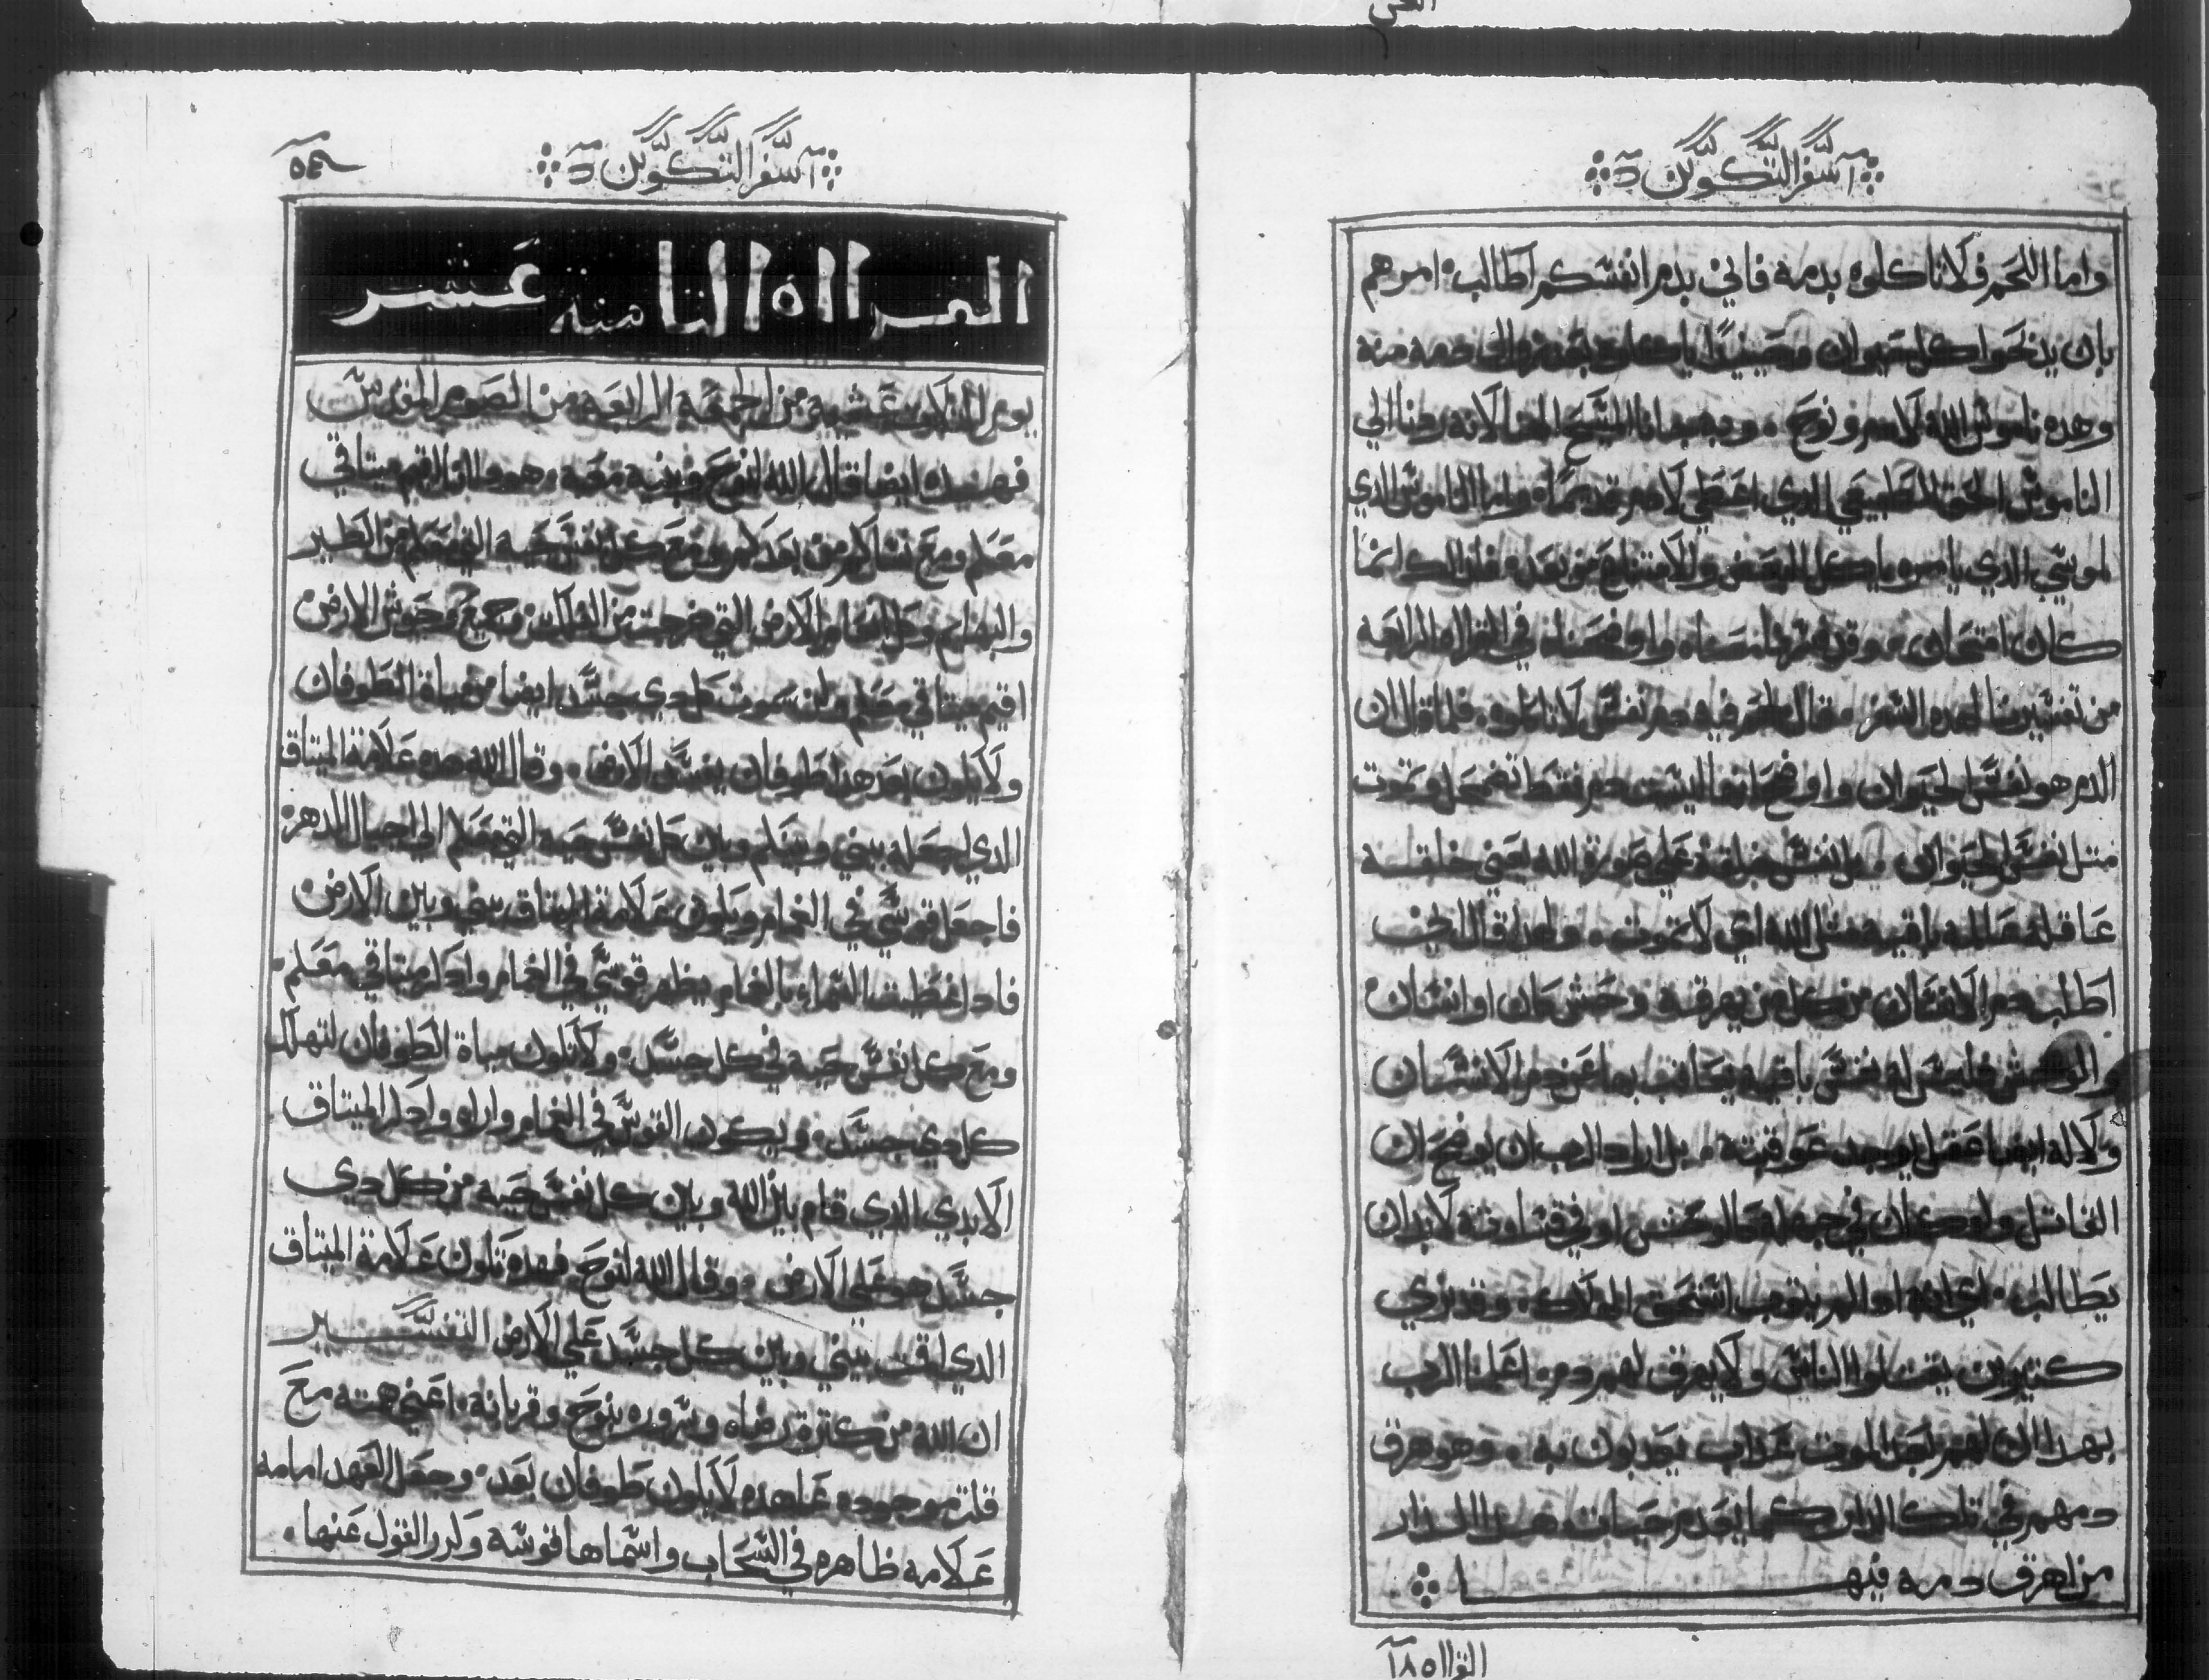 سفر التكوين
واما اللحم فلا تاكلوه بدمه فاني بدم انفسكم اطالب امرهم
بان يدبحوا كل حيوان وحينيدا ياكلوه بعد نزول دمه منه
وهده ناموس الله لادم ونوح وبه جانا المسيح المخلا لانه ردنا الي
الناموس الحق الطبيعي الدي اعطي لادم قديما واما الناموس الدي
لموسي الدي يامره ياكل البعض والامتناع من بعده فدلك انما
كان امتحان وقد شرحنا معناه واوضحناه في القرااه الرابعه
من تفسيرنا لهده السفر فقال لحم فيه دم نفس لا تاكلوه فلما قال ان
الدم هو نفس الحيوان واوضح انها ليست دم فقط تضمحل وتموت
متل نفس الحيوان بل نفس خلقت علي صورة الله يعني خلقت
عاقله عالمه باقيه متل الله اي لا تموت ولهدا قال كيف
اطلب دم الانسان من كل من يهرقه وحش كان او انسان
والوحش فليس له نفس باقيه يعاقب بها عن دم الانسان
ولا له ايضا عقل يوجد عوقبته بل اراد الرب ان يوضح ان
القاتل ولو كان في جهله كالوحش او في قساوته لابد ان
يطالب اي انه او لم يتوب استحق الهلاك وقد نري
كتيرين يقتلوا الناس ولا يهرق لهم دم اعلمنا الرب
بهدا ان لهم بعد الموت عداب يعدبون به وهو هرق
دمهم في تلك الدار كما يعدم حياته هدا الدار
من اهرق دمه فيها
القرااه ١٨
سفر التكوين
القرااه التامنه عشر
يوم التلات عشيه من الجمعه الرابعه من الصوم المقدس
فهده ايضا قال الله لنوح وبنيه معه هوداانا اقيم ميتاقي
معكم ومع نسلكم من بعدكم ومع كل نفس حيه التي معكم من الطير
والبهايم وكل انعام الارض التي خرجت من الفلك من جميع وحوش الارض
اقيم ميتاقي معكم ولن يموت كل دي جسد ايضا من مياة الطوفان
ولا يكون بعد هدا طوفان يفسد الارض وقال الله هده علامة الميتاق
الدي اجعله بيني وبينكم وبين كل نفس حيه التي معكم الي اجيال الدهره
فاجعل قوسي في الغمام ويكون علامة الميتاق بيني وبين الارض
فادا غطيت السماء بالغمام يظهر قوسي في الغمام وادكر ميتاقي معكم
ومع كل نفس حيه في كل جسد ولا يكون مياة الطوفان لتهلك
كل دي جسد ويكون القوس في الغمام واراه وادكر الميتاق
الابدي الدي قام بين الله وبين كل نفس حيه من كل دي
جسد هو علي الارض وقال الله لنوح فهده تكون علامة الميتاق
الدي اقمت بيني وبين كل جسد علي الارض التفسير
ان الله من كترة رضاه وسروره بنوح وقربانه اعني همته مع
قلت موجوده عاهده لا يكون طوفان بعد وجعل العهد امامه
علامه ظاهره في السحاب واسماها قوسه وكرر القول عنها